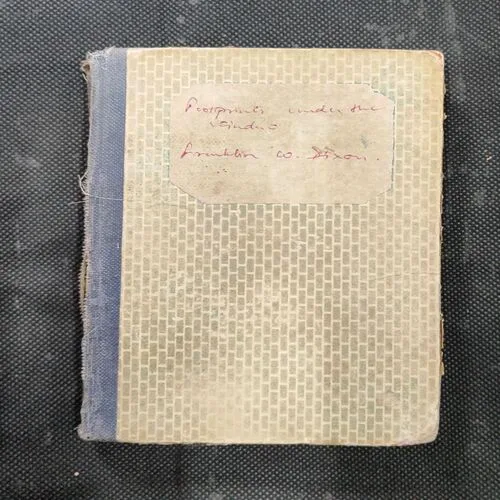 Footprints under the
Window
Franklin W. Dixon.